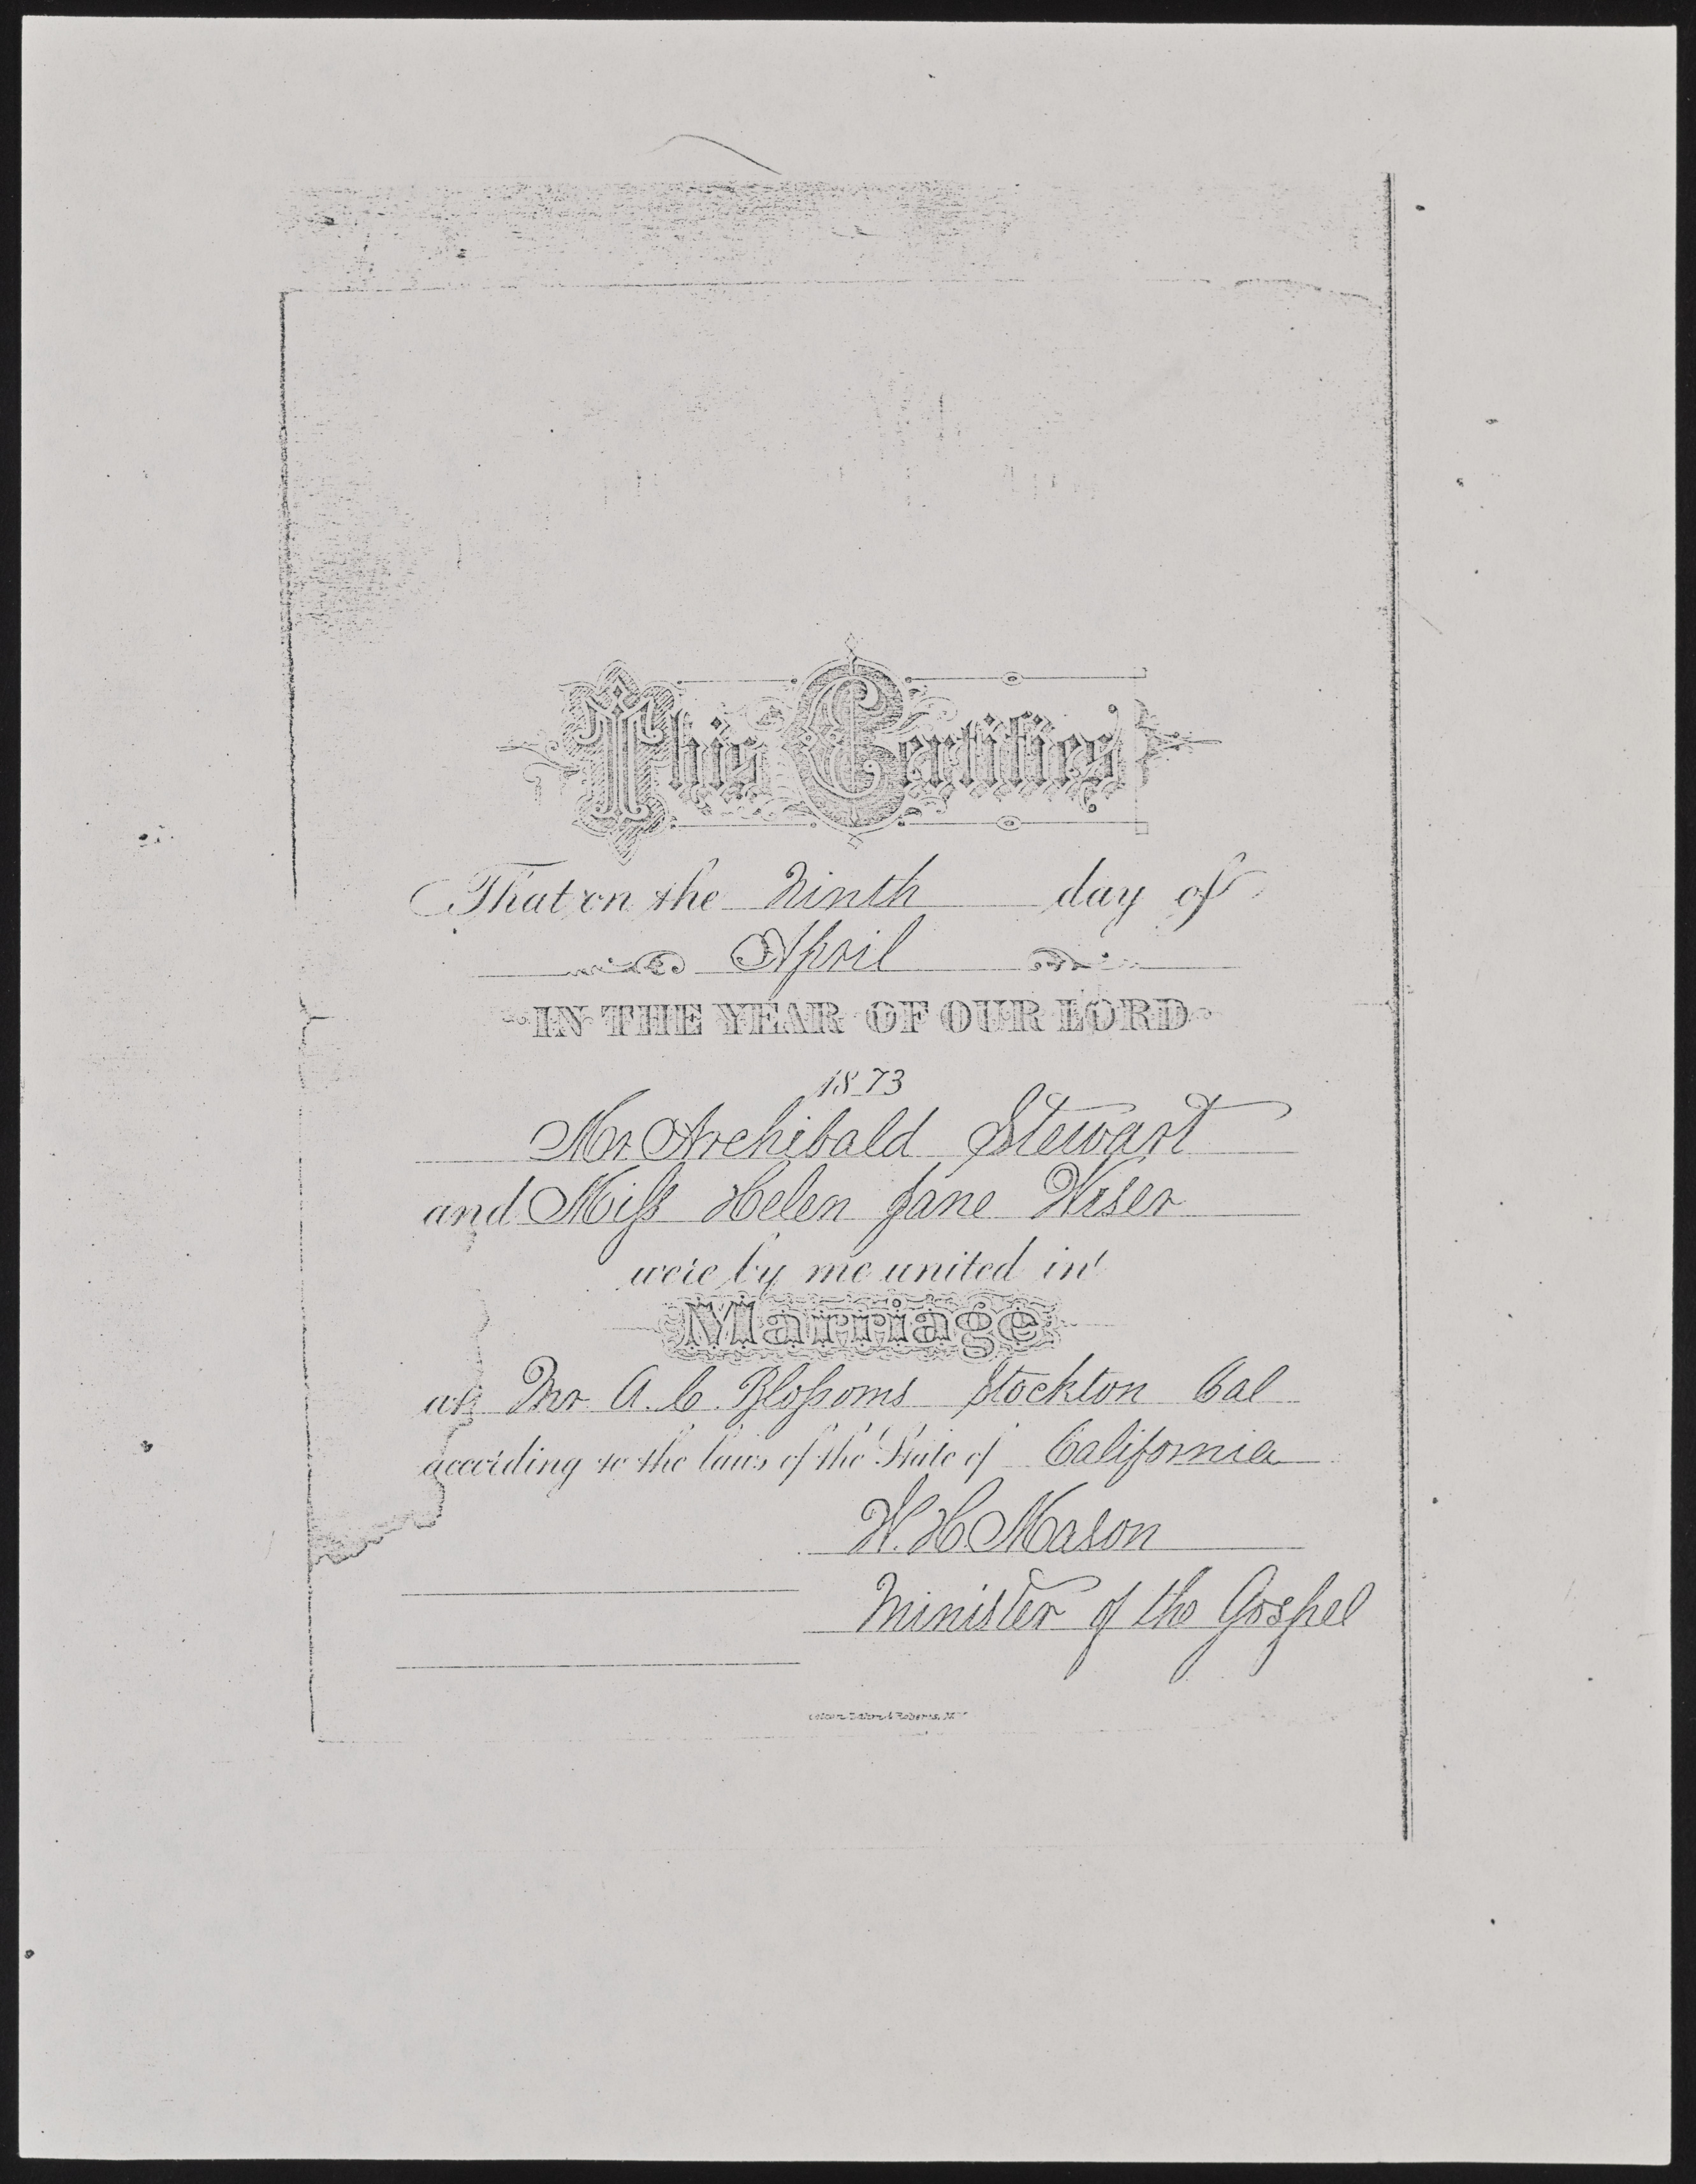 This Certifies
That on the Ninth day of
April
IN THE YEAR OF OUR LORD
1873
Mr Archibald Stewart
and Miſs Helen Jane Wiser
were by me united in
Marriage
at Mr A. C. Bloſsoms Stockton Cal
according to the laws of the State of California
W. H. Mason
Minister of the Gospel